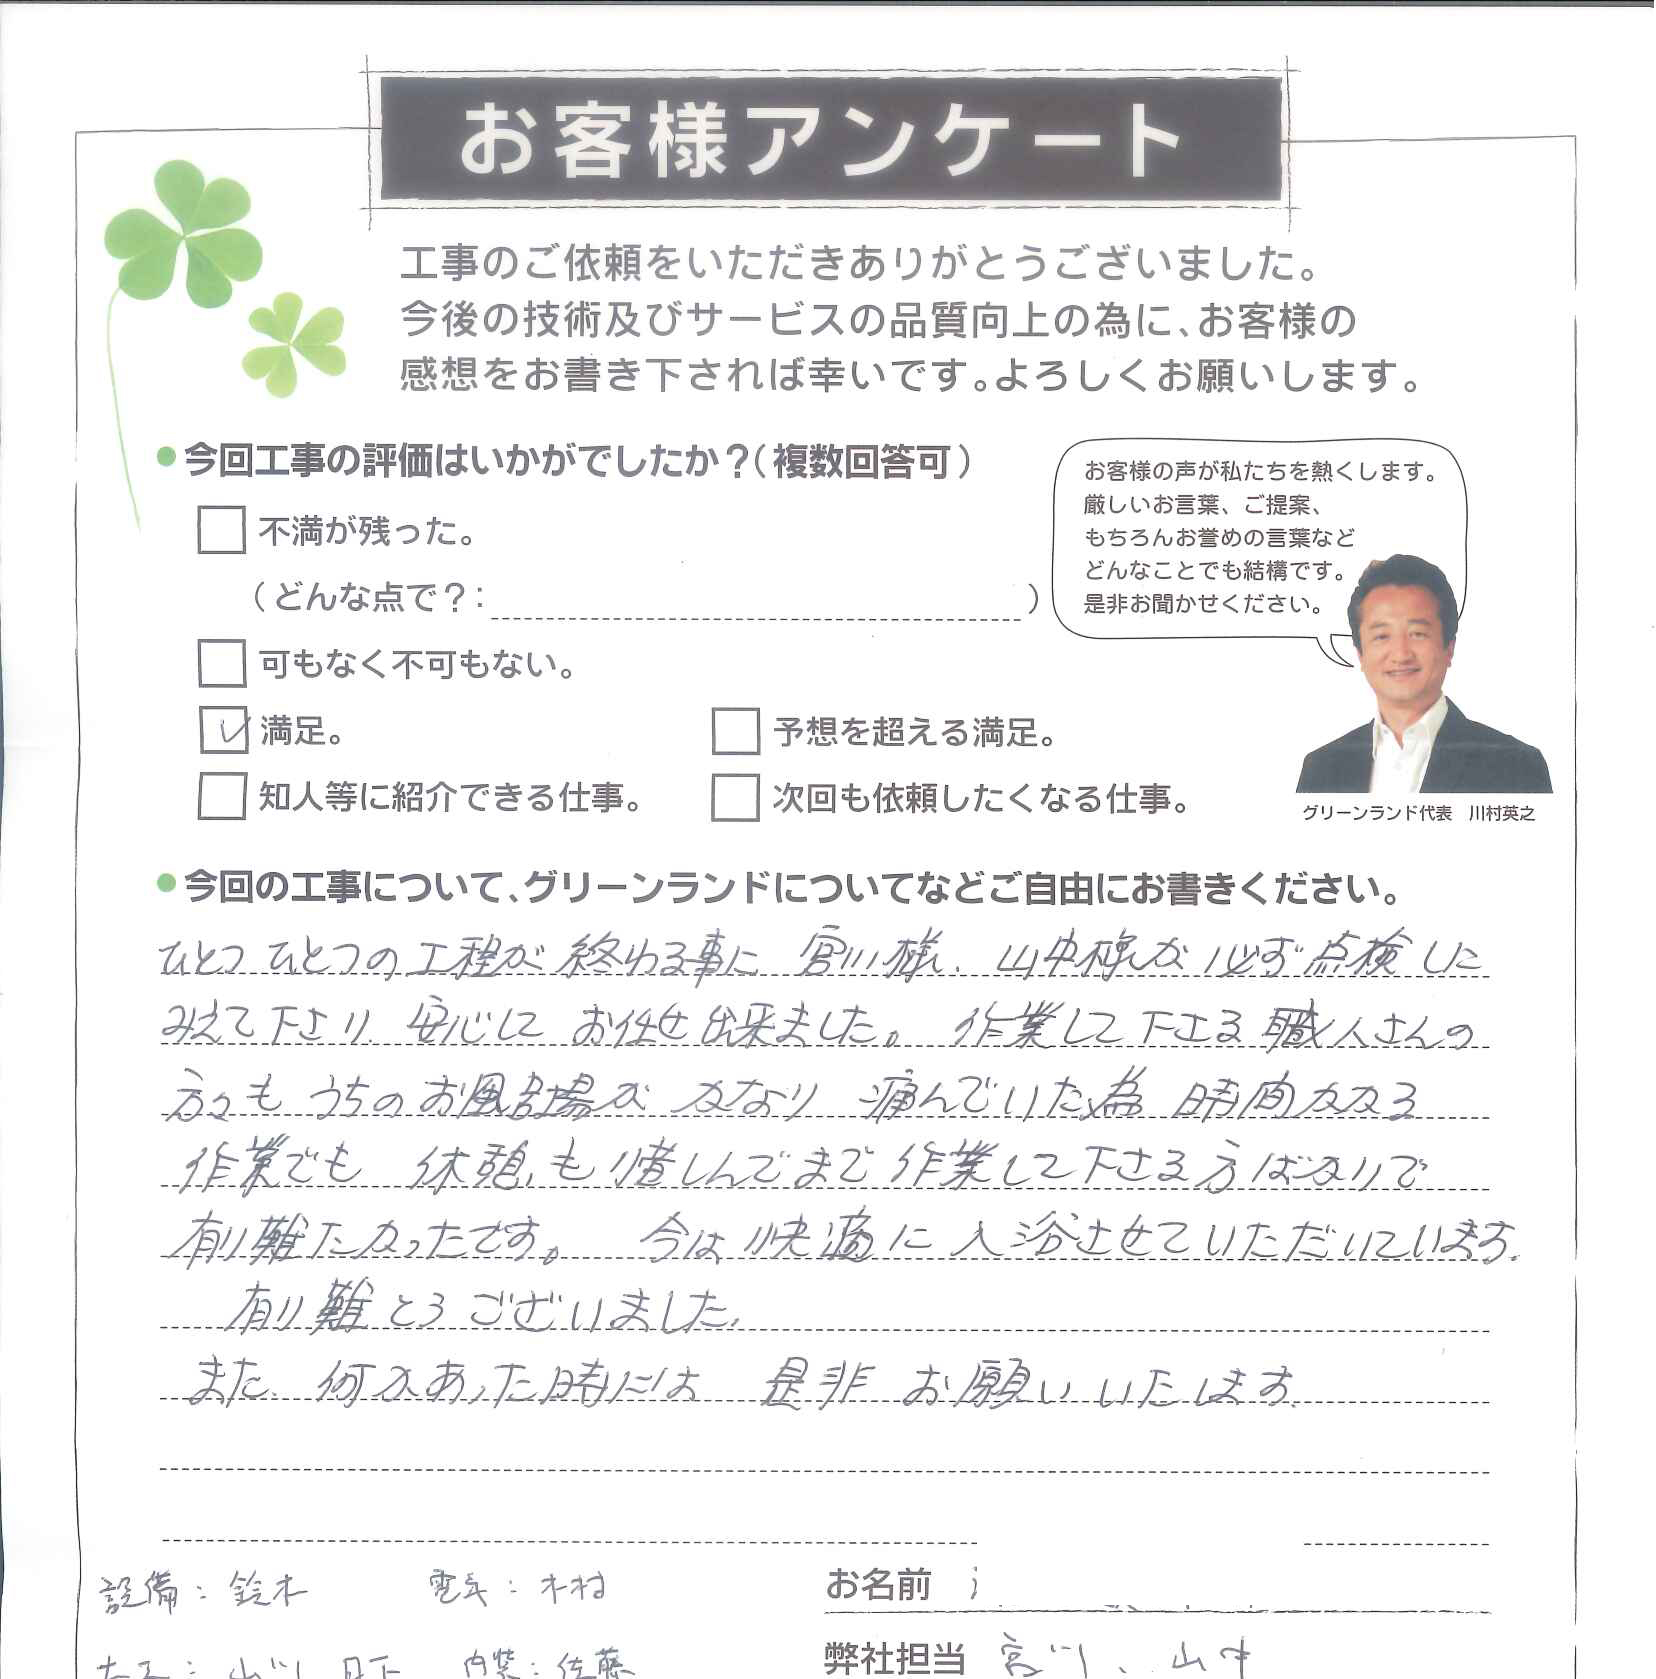 お客様アンケート
工事のご依頼をいただきありがとうございました。
今後の技術及びサービスの品質向上の為に、お客様の
感想をお書き下されば幸いです。よろしくお願いします。
●今回工事の評価はいかがでしたか？（複数回答可）
不満が残った。
（どんな点で？：）
可もなく不可もない。
満足。
予想を超える満足。
知人等に紹介できる仕事。
次回も依頼したくなる仕事。
お客様の声が私たちを熱くします。
厳しいお言葉、ご提案、
もちろんお誉めの言葉など
どんなことでも結構です。
是非お聞かせください。
グリーンランド代表　川村英之
●今回の工事について、グリーンランドについてなどご自由にお書きください。
ひとつひとつの工程が終わる事に 宮川様、山中様が必ず点検しに
みえて下さり、安心して お任せ出来ました。 作業して下さる職人さんの
方々も うちのお風呂場が かなり 痛んでいた為 時間かかる
作業でも 休憩も惜しんでまで作業して下さる方ばかりで
有り難たかったです。 今は快適に入浴させていただいています。
有り難とうございました。
また、何かあった時には 是非 お願いいたします。
設備：鈴木　電気：木村
お名前
大工：　日下　内装：佐藤
弊社担当 宮川、山中